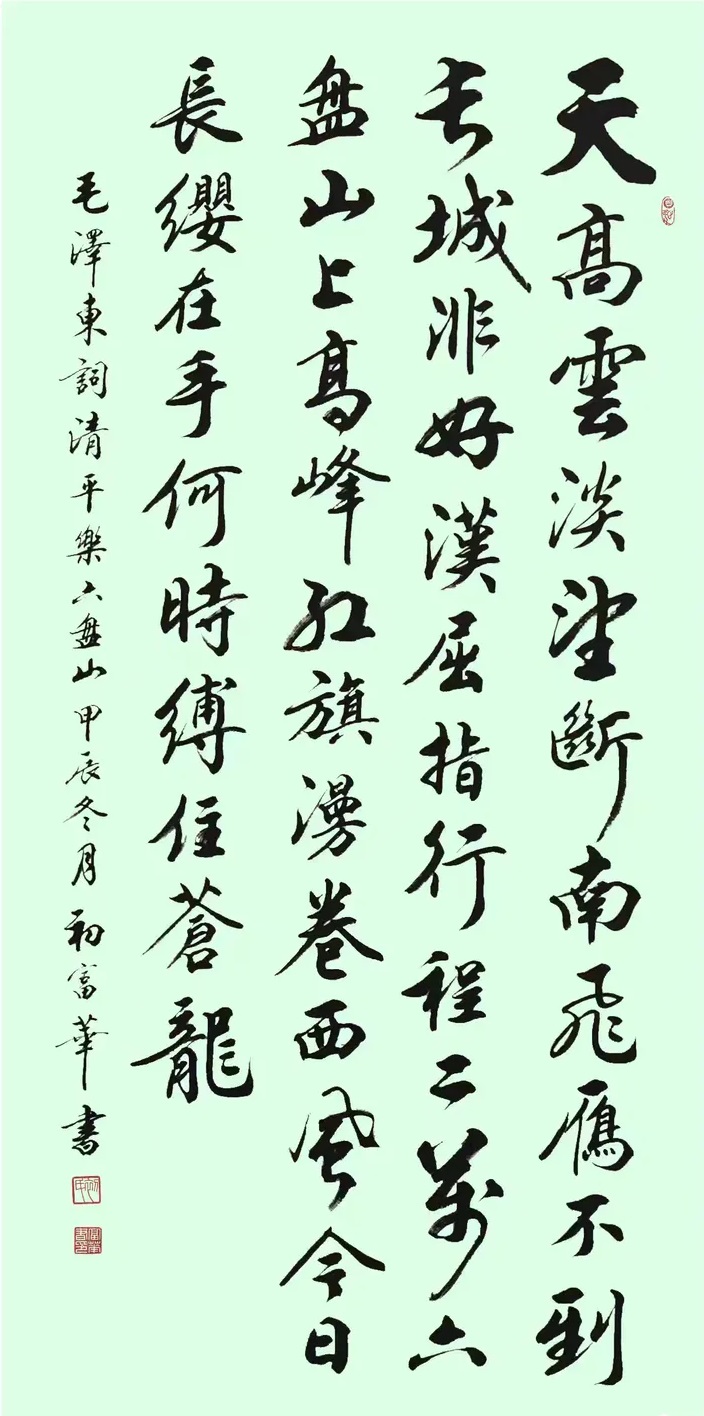 天高雲淡望斷南飛雁不到
长城非好漢屈指行程二萬六
盘山上高峰红旗漫卷西风今日
長纓在手何時縛住蒼龍
毛澤東詞清平樂六盘山甲辰冬月初富華書